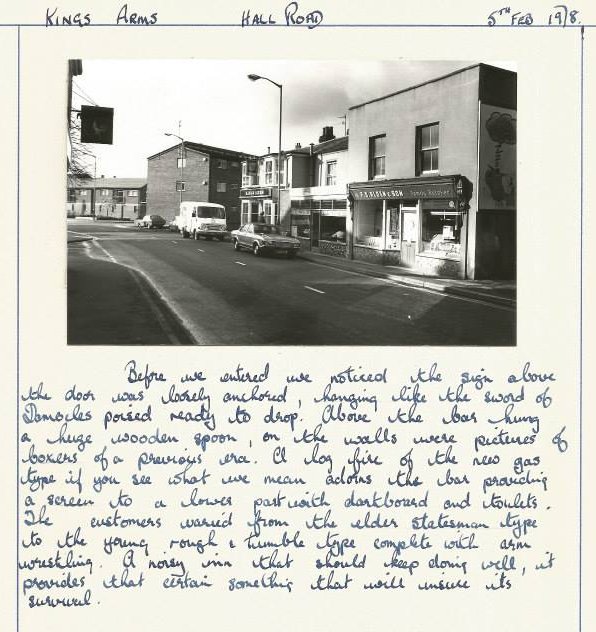 KINGS ARMS HALL ROAD 5TH FEB 1918.
& SON
Before we entered we noticed the sign above
the door was loosely anchored, hanging like the sword of
Damocles poised ready to drop. Above the bar hung
a huge wooden spoon, on the walls were pictures of
boxers of a previous era. A log fire of the new gas
type if you see what we mean adorns the bar providing
a screen to a lower part with dartboard and toilets.
The customers varied from the elder statesman type
to the young rough & tumble type complete with arm
wrestling. A noisy inn that should keep doing well, it
provides that certain something that will insure its
survival.